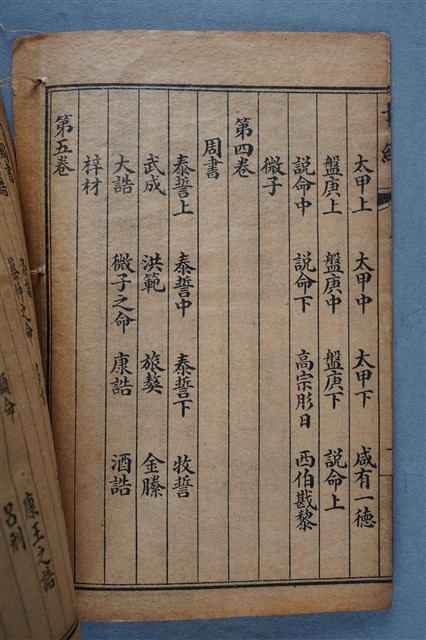 太甲上 太甲中 太甲下 咸有一德
盤庚上 盤庚中 盤庚下 説命上
説命中 説命下 高宗肜日 西伯戡黎
微子
第四卷
周書
泰誓上 泰誓中 泰誓下 牧誓
武成 洪範 旅獒 金縢
大誥 微子之命 康誥 酒誥
梓材
第五卷
康王之誥
蔡仲之命 顧命 呂刑